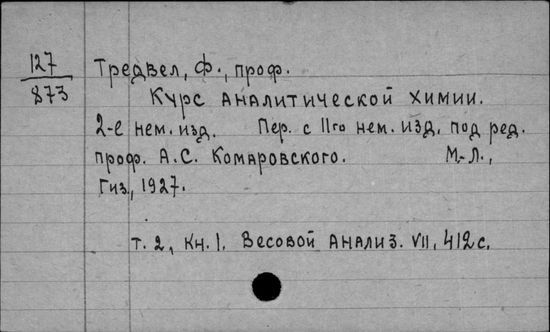 127
873
Тредвел, Ф., проф.
Курс аналитической химии.
2-е нем. изд. Пер. с 11го нем. изд. под ред.
проф. А.С. Комаровского. М.-Л.,
Гиз., 1927.
т. 2, кн. 1. Весовой анализ. VII, 412 с.